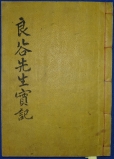 良谷先生實記